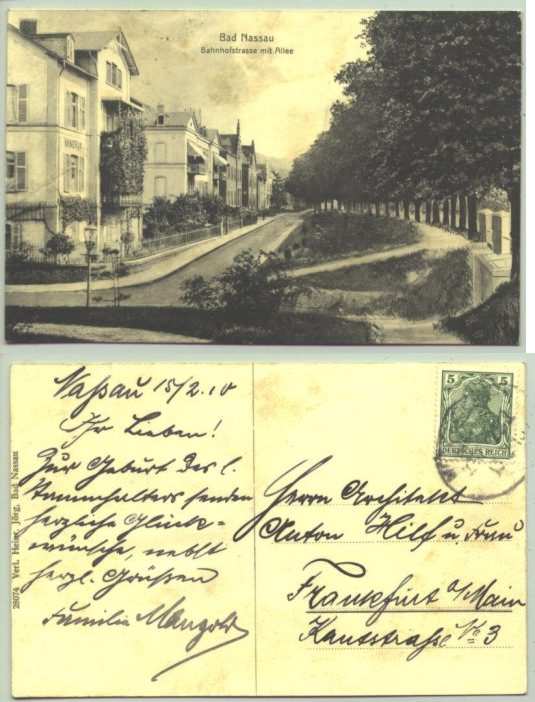 Bad Nassau
Bahnhofstrasse mit Allee
Naßau 15/2.10
Ihr Lieben!
Zur Geburt des l.
Stammhalters senden
herzliche Glück-
wünsche, nebst
herzl. Grüßen
Familie Mangold
28074 Verl. Heinr. Jörg, Bad Nassau
5 5
DEUTSCHES REICH
Herrn Architekt
Anton Hilf u. Frau
Frankfurt a/Main
Kantstraße No 3